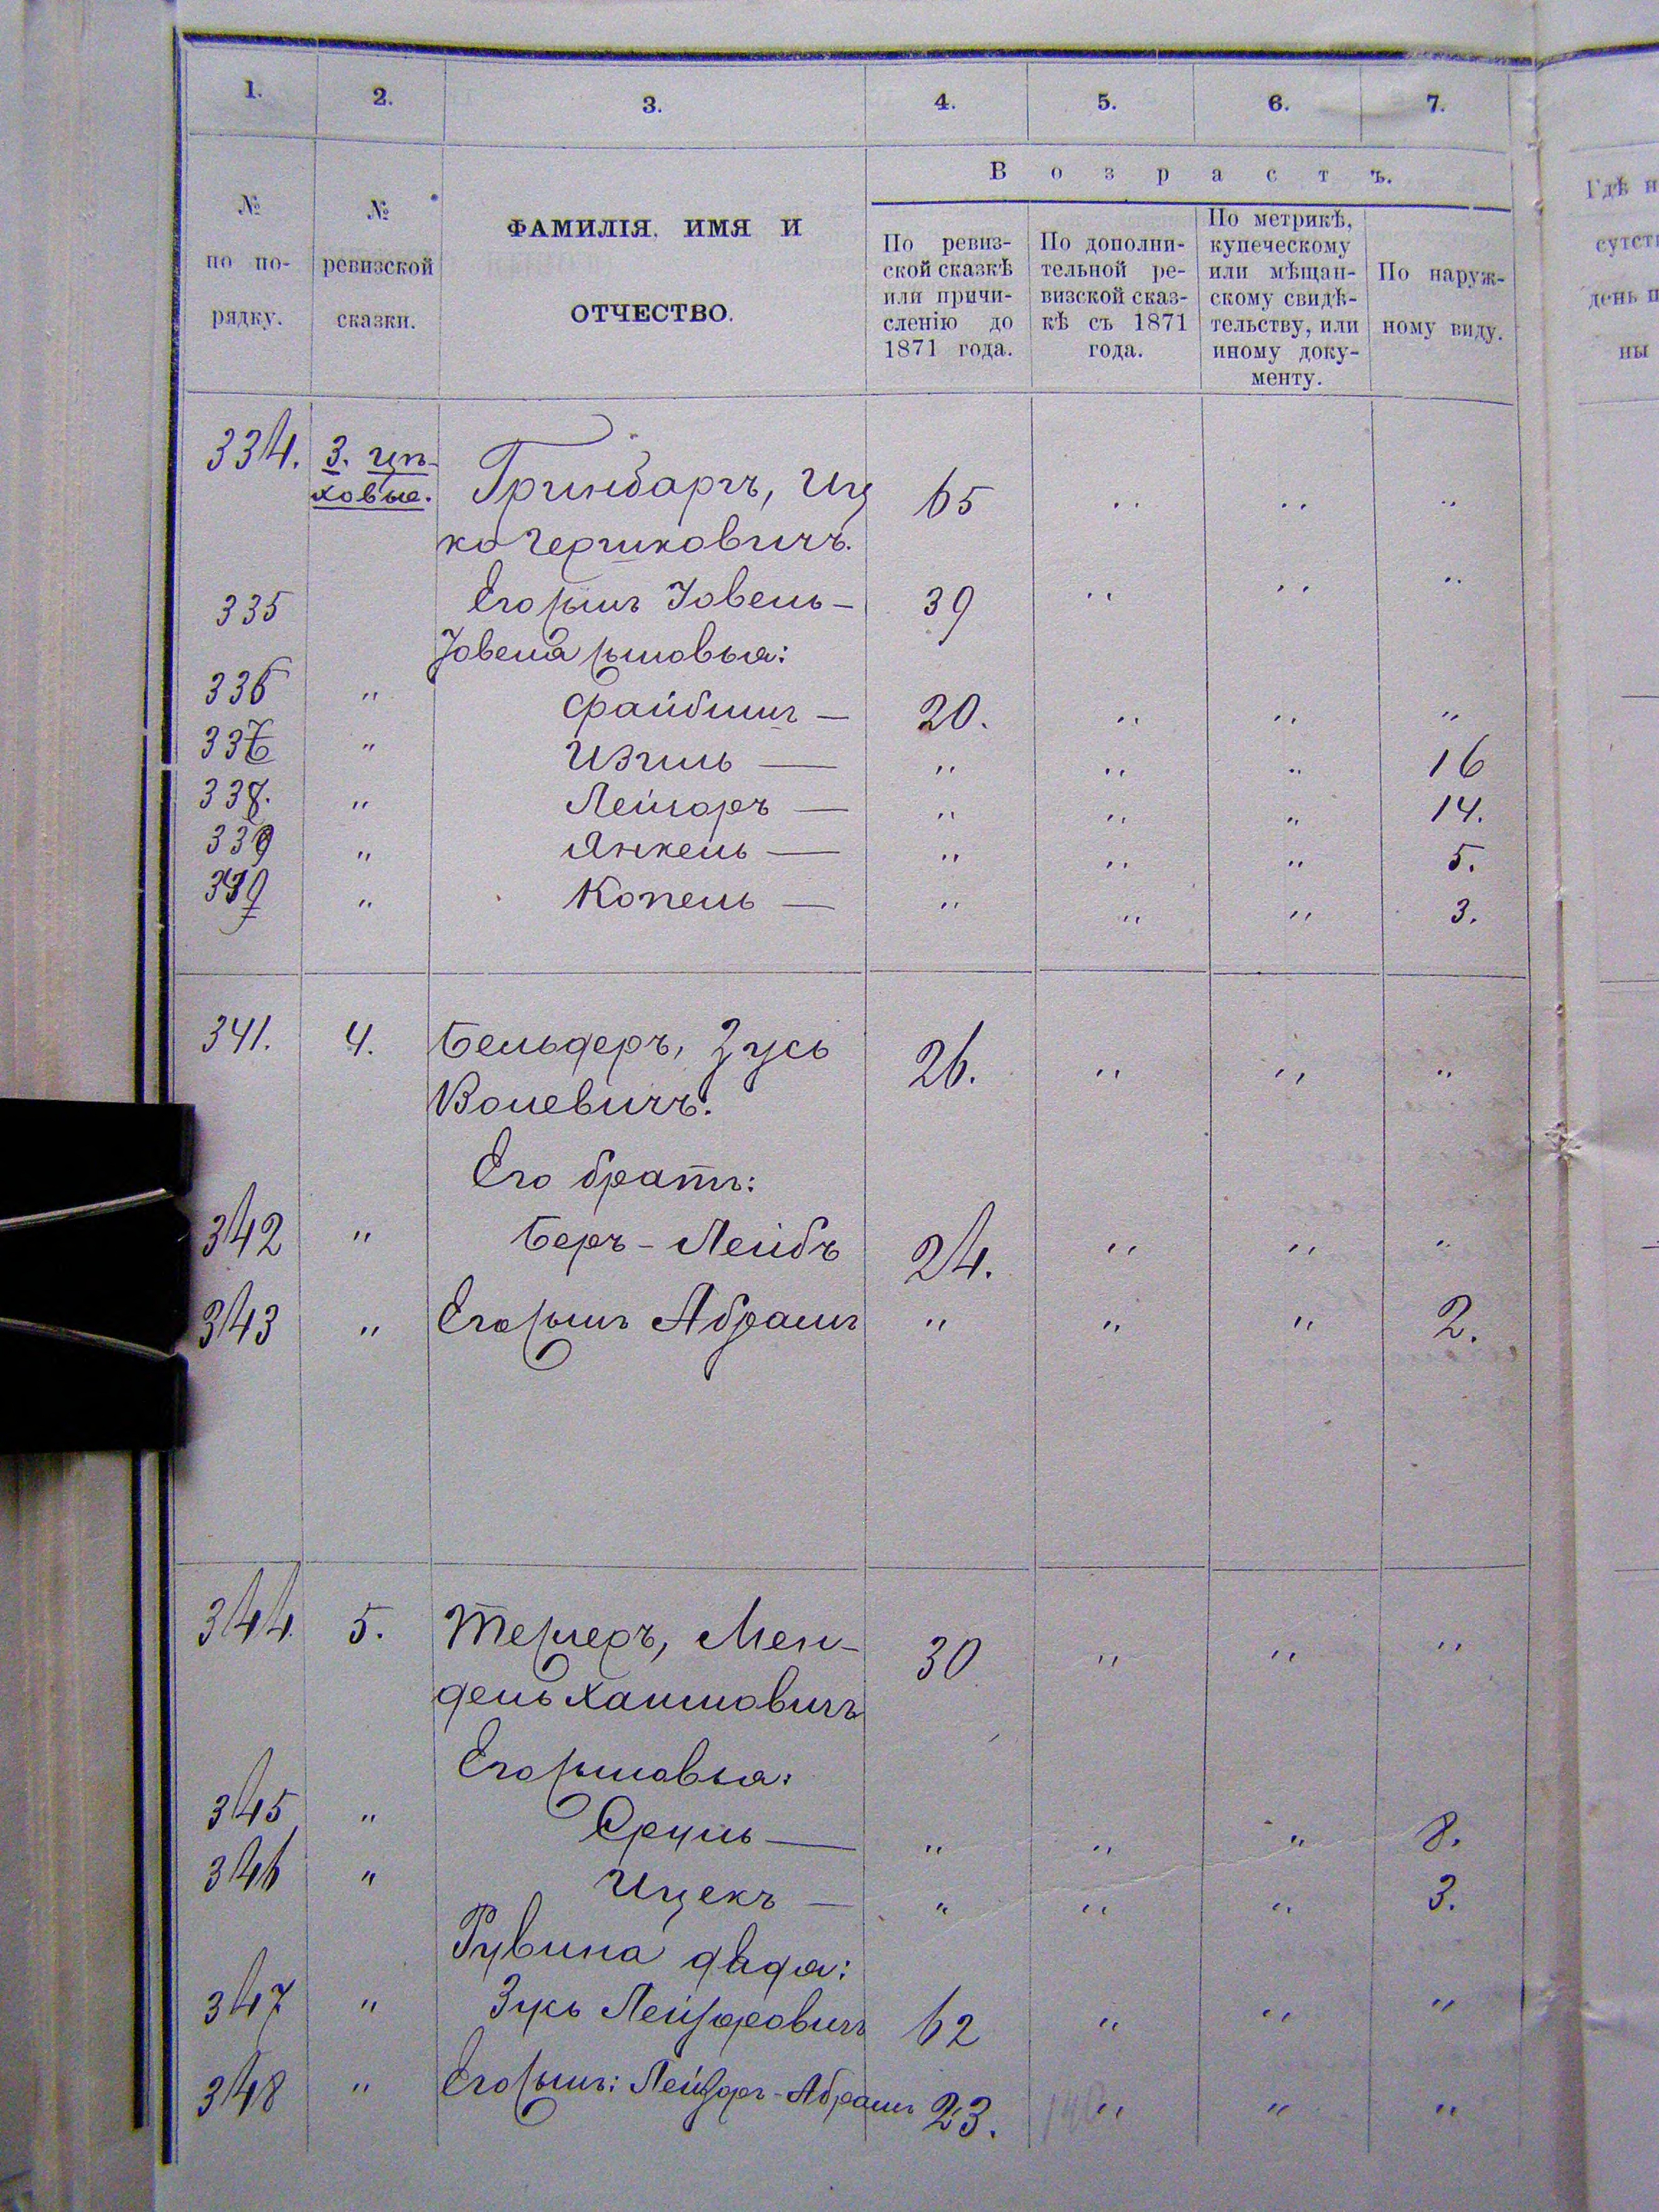 1. 2. 3. 4. 5. 6. 7.
№ по по-рядку.
№ ревизской сказки.
ФАМИЛІЯ, ИМЯ И
ОТЧЕСТВО.
Возрастъ.
По ревиз-
ской сказкѣ
или причи-
сленію до
1871 года.
По дополни-
тельной ре-
визской сказ-
кѣ съ 1871
года.
По метрикѣ,
купеческому
или мѣщан-
скому свидѣ-
тельству, или
иному доку-
менту.
По наруж-
ному виду.
Гдѣ н
сутст
день п
ны
334. 3. цп- Гринбаргъ, Иц 65 " " "
ховые. ко Гершковичъ.
335 Его сынъ Іовель — 39 " " "
Іовеля сыновья:
336 " Файбишъ — 20. " " "
337 " Изгиль — " " " 16
338. " Лейзоръ — " " " 14.
339 " Янкель — " " " 5.
" Копель — " " " 3.
341. 4. Бельдеръ, Зусь 26. " " "
Волевичъ.
Его братъ:
342 " Беръ-Лейбъ 24. " " "
343 " Его сынъ Абрамъ " " " 2.
344. 5. Темеръ, Мен- 30 " " "
дель Хаимовичъ
Его сыновья:
345 " Сруль — " " " 8.
346 " Ицекъ — " " " 3.
Рувина дядя:
347 " Зусь Лейзоровичъ 62 " " "
348 " Его сынъ: Лейзоръ-Абрамъ 23. " " "